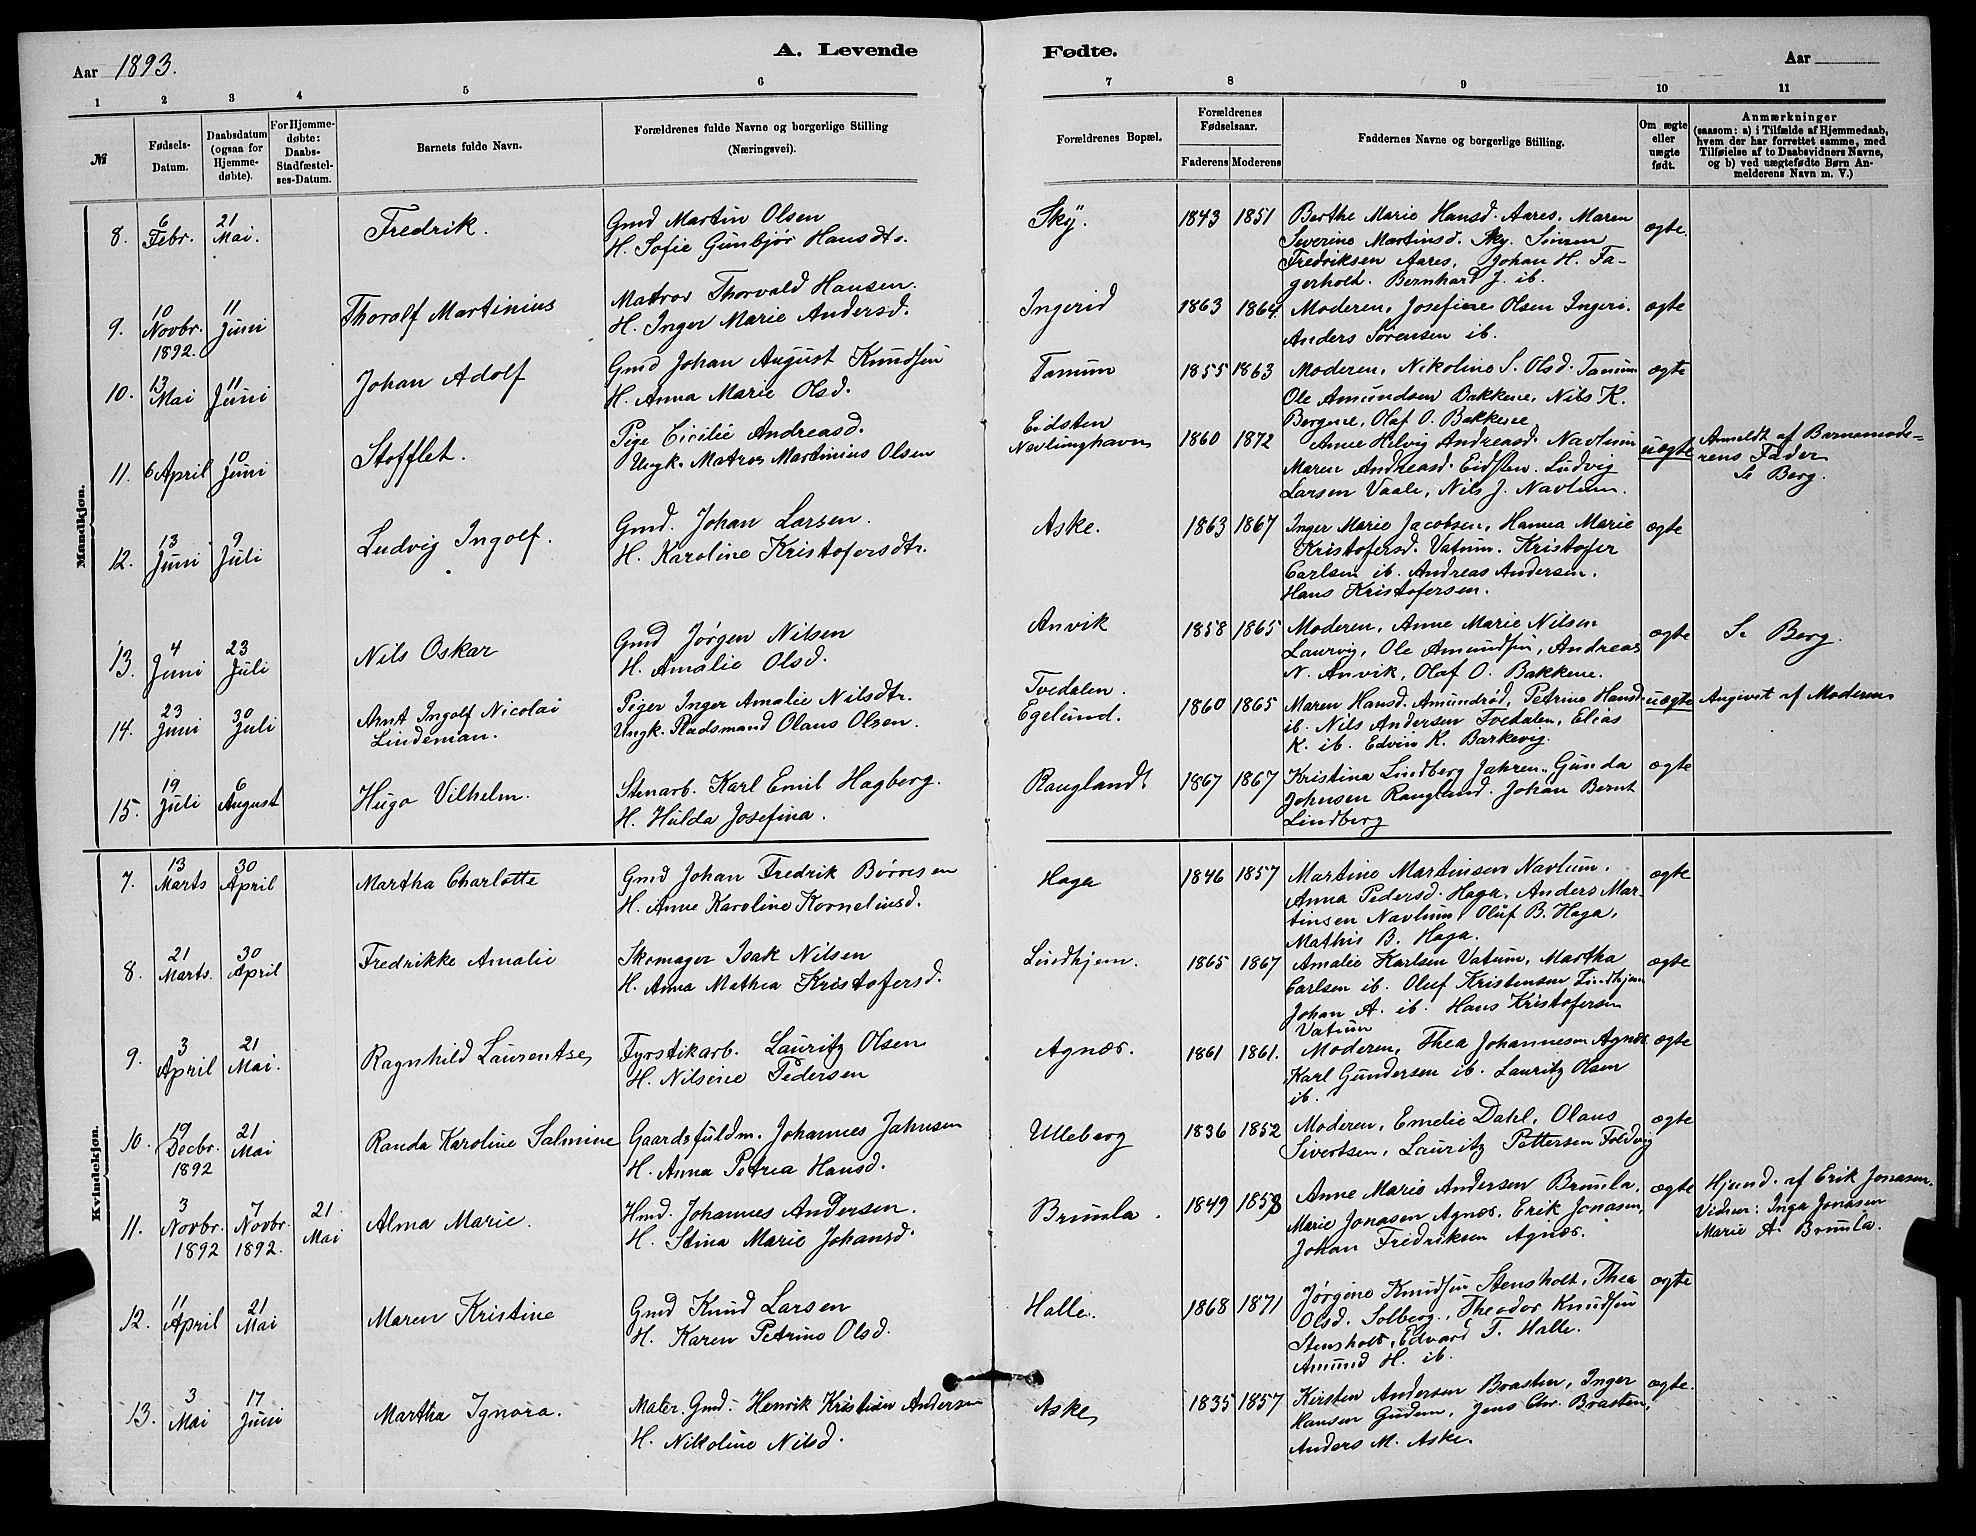 Aar 1893.
A. Levende
Fødte.
Aar
1 2 3 4 5 6 7 8 9 10 11
№
Fødsels-Datum.
Daabsdatum (ogsaa for Hjemmedøbte).
For Hjemmedøbte: Daabs-Stadfæstelses-Datum.
Barnets fulde Navn.
Forældrenes fulde Navne og borgerlige Stilling (Næringsvei).
Forældrenes Bopæl.
Forældrenes Fødselsaar.
Faderens Moderens
Faddernes Navne og borgerlige Stilling.
Om ægte eller uægte født.
Anmærkninger (saasom: a) i Tilfælde af Hjemmedaab, hvem der har forrettet samme, med Tilføielse af to Daabsvidners Navne, og b) ved uægtefødte Børn Anmelderens Navn m. V.)
Mandkjøn.
8. 6 Febr. 21 Mai. Fredrik.
Gmd Martin Olsen
H. Sofie Gunbjør Hansdtr.
Sky. 1843 1851
Berthe Marie Hansd. Aares. Maren
Severine Martinsd. Sky. Simen
Fredriksen Aares, Johan H. Fa-
gerholt. Bernhard J. ib.
ægte.
9. 10 Novbr. 1892. 11 Juni Thoralf Martinius
Matros Thorvald Hansen.
H. Inger Marie Andersd.
Ingerid 1863 1864.
Moderen, Josefine Olsen Ingeri.
Anders Sørensen ib.
ægte
10. 13 Mai 11 Juni Johan Adolf
Gmd Johan August Knudsen
H. Anna Marie Olsd.
Tanum 1855 1863
Moderen, Nikoline S. Olsd. Tanum
Ole Amundsen Bakkene, Nils K.
Bergene, Olaf O. Bakkene
ægte
11. 6 April 10 Juni Stofflet.
Pige Cicilie Andreasd.
Ungk. Matros Martinius Olsen
Eidsten
Navlunghavn
1860 1872
Anne Helvig Andreasd. Navlum
Maren Andreasd. Eidsten. Ludvig
Larsen Vaale, Nils J. Navlum.
uægte
Anmeldt af Barnemode-
rens Fader
Se Berg.
12. 13 Juni 9 Juli Ludvig Ingolf.
Gmd. Johan Larsen.
H. Karoline Kristofersdtr.
Aske. 1863 1867
Inger Marie Jacobsen, Hanna Marie
Kristofersd. Vatum. Kristofer
Carlsen ib. Andreas Andersen.
Hans Kristofersen.
ægte
13. 4 Juni 23 Juli Nils Oskar
Gmd Jørgen Nilsen
H. Amalie Olsd.
Anvik 1858 1865
Moderen, Anne Marie Nilsen
Laurvig, Ole Amundsen, Andreas
N. Anvik, Olaf O. Bakkene.
ægte
Se Berg.
14. 23 Juni 30 Juli Arnt Ingolf Nicolai
Lindeman.
Piger Inger Amalie Nilsdtr.
Ungk. Pladsmand Olaus Olsen.
Tvedalen.
Egelund.
1860 1865
Maren Hansd. Amundrød, Petrine Hansd.
ib. Nils Andersen Tvedalen, Elias
K. ib. Edvin K. Barkevig.
uægte
Angivet af Moderen
15. 19 Juli 6 August Hugo Vilhelm.
Stenarb. Karl Emil Hagberg.
H. Hulda Josefina.
Rauglandt 1867 1867
Kristina Lindberg Jahren. Gunda
Johnsen Raugland. Johan Bernt
Lindberg
ægte
Kvindekjøn.
7. 13 Marts 30 April Martha Charlotte
Gmd Johan Fredrik Børresen
H. Anne Karoline Korneliusd.
Haga 1846 1857
Martine Martinsen Navlum.
Anna Pedersd. Haga, Anders Mar-
tinsen Navlum, Oluf B. Haga,
Mathis B. Haga.
ægte
8. 21 Marts. 30 April Fredrikke Amalie
Skomager Isak Nilsen
H. Anna Mathea Kristofersd.
Lindhjem. 1865 1867
Amalie Karlsen Vatum, Martha
Carlsen ib. Oluf Kristensen Lindhjem
Johan A. ib. Hans Kristofersen
Vatum
ægte
9. 3 April 21 Mai. Ragnhild Laurentse
Fyrstikarb. Lauritz Olsen
H. Nilsine Pedersen
Agnæs. 1861 1861.
Moderen, Thea Johannesen Agnæs.
Karl Gundersen ib. Lauritz Olsen
ib.
ægte
10. 19 Decbr. 1892 21 Mai Randa Karoline Salmine
Gaardsfuldm. Johannes Jahnsen
H. Anna Petrea Hansd.
Ulleberg 1836 1852
Moderen, Emelie Dahl, Olaus
Sivertsen, Lauritz Pettersen Foldvig
ægte
11. 3 Novbr. 1892 7 Novbr. 1892. 21 Mai Alma Marie.
Hmd. Johannes Andersen.
H. Stina Marie Johansd.
Brunla. 1849 1858
Anne Marie Andersen Brunla,
Marie Jonasen Agnæs. Erik Jonasen,
Johan Fredriksen Agnæs.
ægte
Hjemd. af Erik Jonasen.
Vidner: Inga Jonasen
Marie A. Brunla.
12. 11 April 21 Mai Maren Kristine
Gmd Knud Larsen
H. Karen Petrine Olsd.
Halle. 1868 1871
Jørgine Knudsen Stensholt, Thea
Olsd. Solberg, Theodor Knudsen
Stensholt, Edvard T. Halle.
Amund H. ib.
ægte
13. 3 Mai 17 Juni Martha Ignora.
Maler. Gmd. Henrik Kristian Andersen
H. Nikoline Nilsd.
Aske 1835 1857
Kirsten Andersen Brasten, Inger
Hansen Gudem, Jens Chr. Brasten,
Anders M. Aske.
ægte.